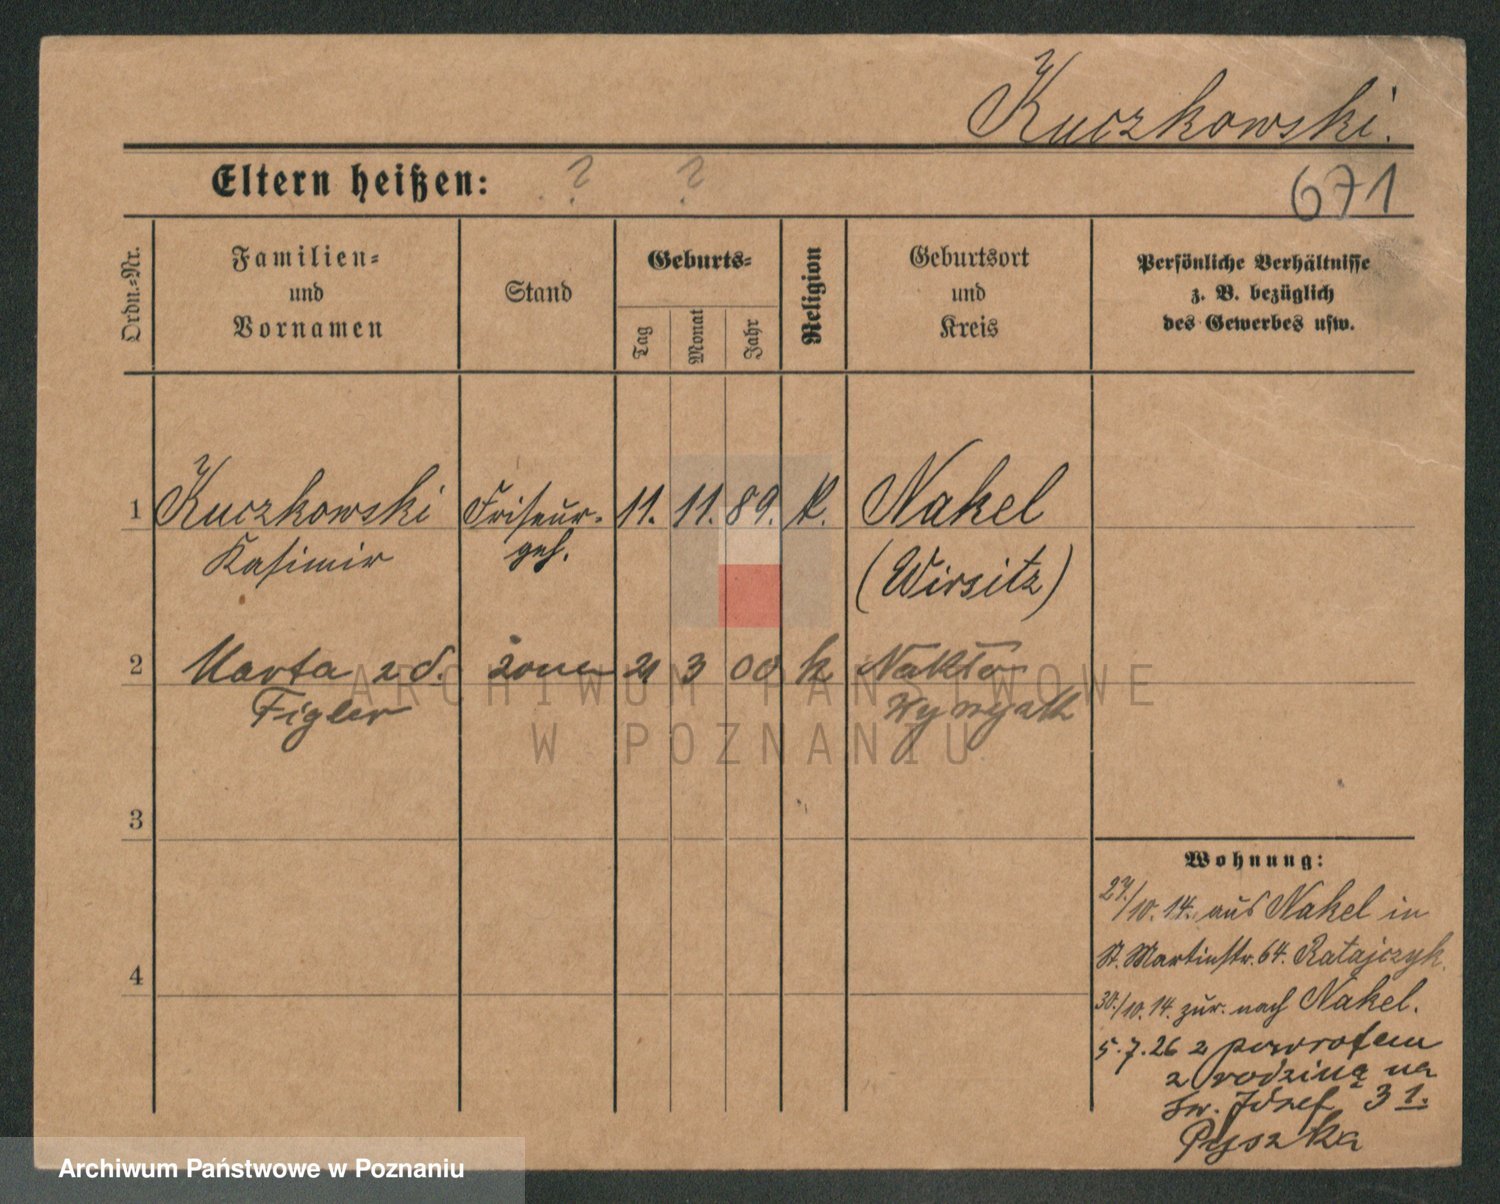 Kuczkowski.
Eltern heißen: ? ?
671
Ordn.=Nr.
Familien=
und
Vornamen
Stand
Geburts=
Tag
Monat
Jahr
Religion
Geburtsort
und
Kreis
Persönliche Verhältnisse
z. B. bezüglich
des Gewerbes usw.
1 Kuczkowski Friseur- 11. 11. 89. k. Nakel
Kasimir geh. (Wirsitz)
2 Marta z d. żona 21 3 00 k Nakło
Figler Wyrzysk
ARCHIWUM PAŃSTWOWE
W POZNANIU
3
4
Wohnung:
27./10. 14. aus Nakel in
St. Martinstr. 64. Ratajczyk.
30./10. 14. zur. nach Nakel.
5.7.26 z powrotem
z rodziną na
Św. Józef 3 I.
Pyszka
Archiwum Państwowe w Poznaniu